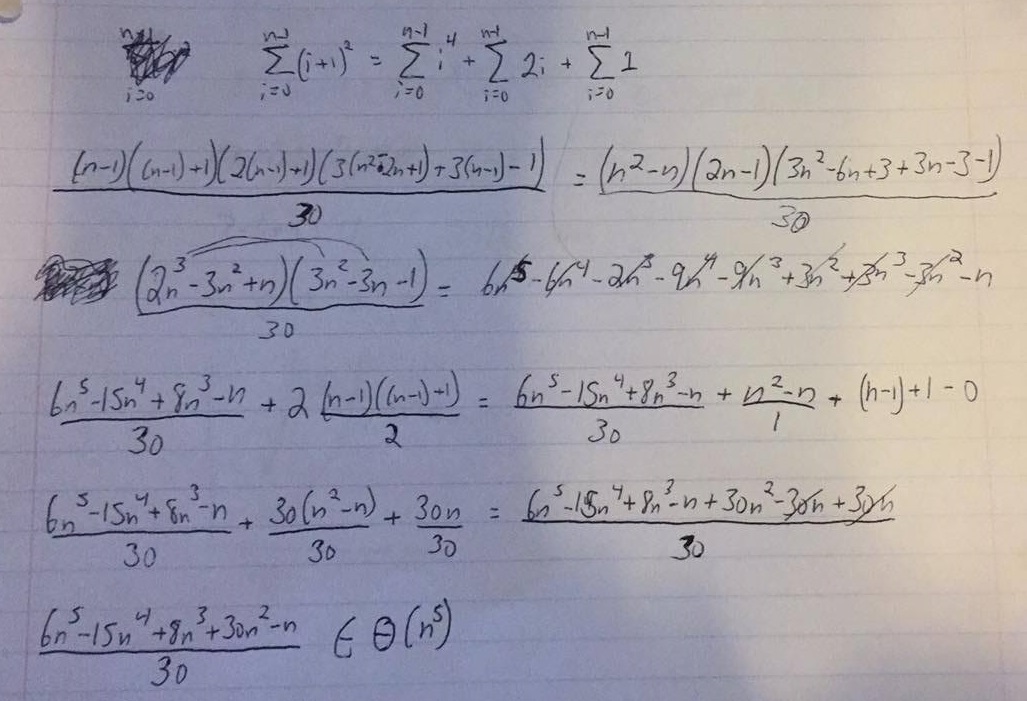 n-1 Σ i=0 (i+1)² = n-1 Σ i=0 i⁴ + n-1 Σ i=0 2i + n-1 Σ i=0 1
(n-1)((n-1)+1)(2(n-1)+1)(3(n²-2n+1)+3(n-1)-1) / 30 = (n²-n)(2n-1)(3n²-6n+3+3n-3-1) / 30
(2n³-3n²+n)(3n²-3n-1) / 30 = 6n⁵-6n⁴-2n³-9n⁴-9n³+3n²+3n³-3n²-n
6n⁵-15n⁴+8n³-n / 30 + 2 (n-1)((n-1)+1) / 2 = 6n⁵-15n⁴+8n³-n / 30 + n²-n / 1 + (n-1)+1-0
6n⁵-15n⁴+8n³-n / 30 + 30(n²-n) / 30 + 30n / 30 = 6n⁵-15n⁴+8n³-n+30n²-30n+30n / 30
6n⁵-15n⁴+8n³+30n²-n / 30 ∈ Θ(n⁵)